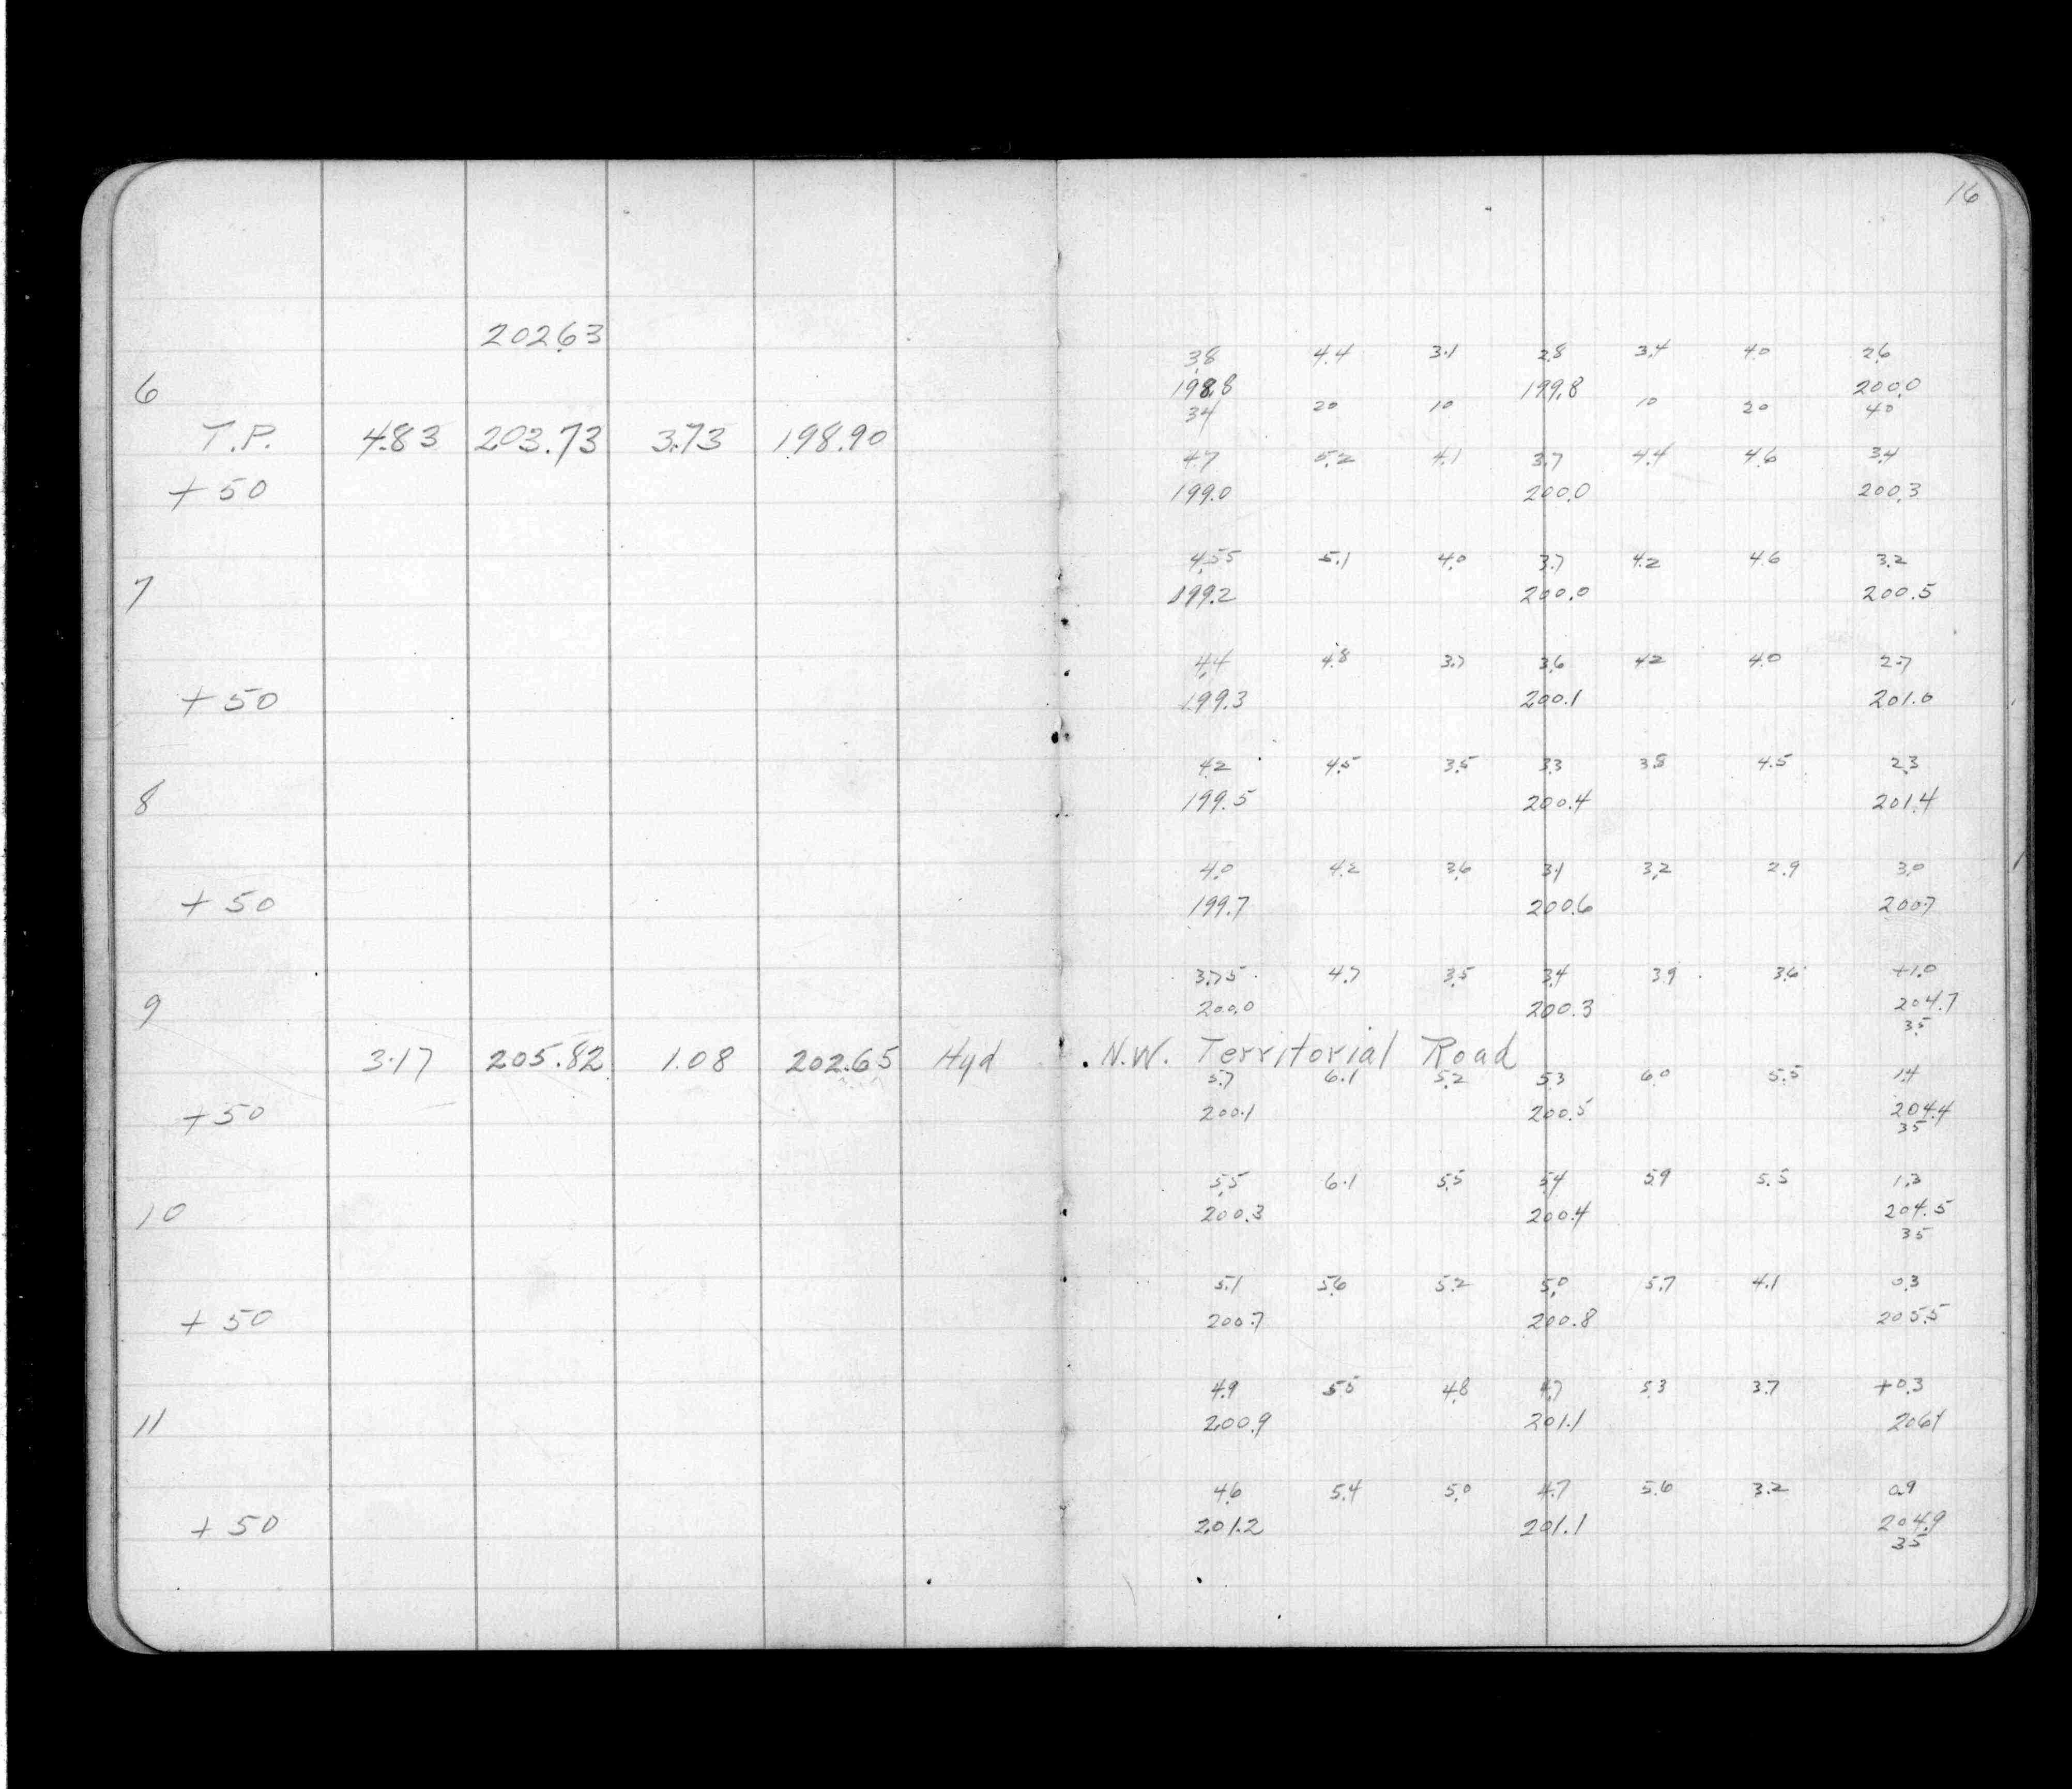 16
202.63
3.8 4.4 3.1 2.8 3.4 4.0 2.6
6 198.8 199.8 200.0
34 20 10 10 20 40
T.P. 4.83 203.73 3.73 198.90
4.7 5.2 4.1 3.7 4.4 4.6 3.4
+50 199.0 200.0 200.3
4.55 5.1 4.0 3.7 4.2 4.6 3.2
7 199.2 200.0 200.5
4.4 4.8 3.7 3.6 4.2 4.0 2.7
+50 199.3 200.1 201.0
4.2 4.5 3.5 3.3 3.8 4.5 2.3
8 199.5 200.4 201.4
4.0 4.2 3.6 3.1 3.2 2.9 3.0
+50 199.7 200.6 200.7
3.75 4.7 3.5 3.4 3.9 3.6 +1.0
9 200.0 200.3 204.7
35
3.17 205.82 1.08 202.65 Hyd N.W. Territorial Road
5.7 6.1 5.2 5.3 6.0 5.5 1.4
+50 200.1 200.5 204.4
35
5.5 6.1 5.5 5.4 5.9 5.5 1.3
10 200.3 200.4 204.5
35
5.1 5.6 5.2 5.0 5.7 4.1 0.3
+50 200.7 200.8 205.5
4.9 5.5 4.8 4.7 5.3 3.7 +0.3
11 200.9 201.1 206.1
4.6 5.4 5.0 4.7 5.6 3.2 0.9
+50 201.2 201.1 204.9
35